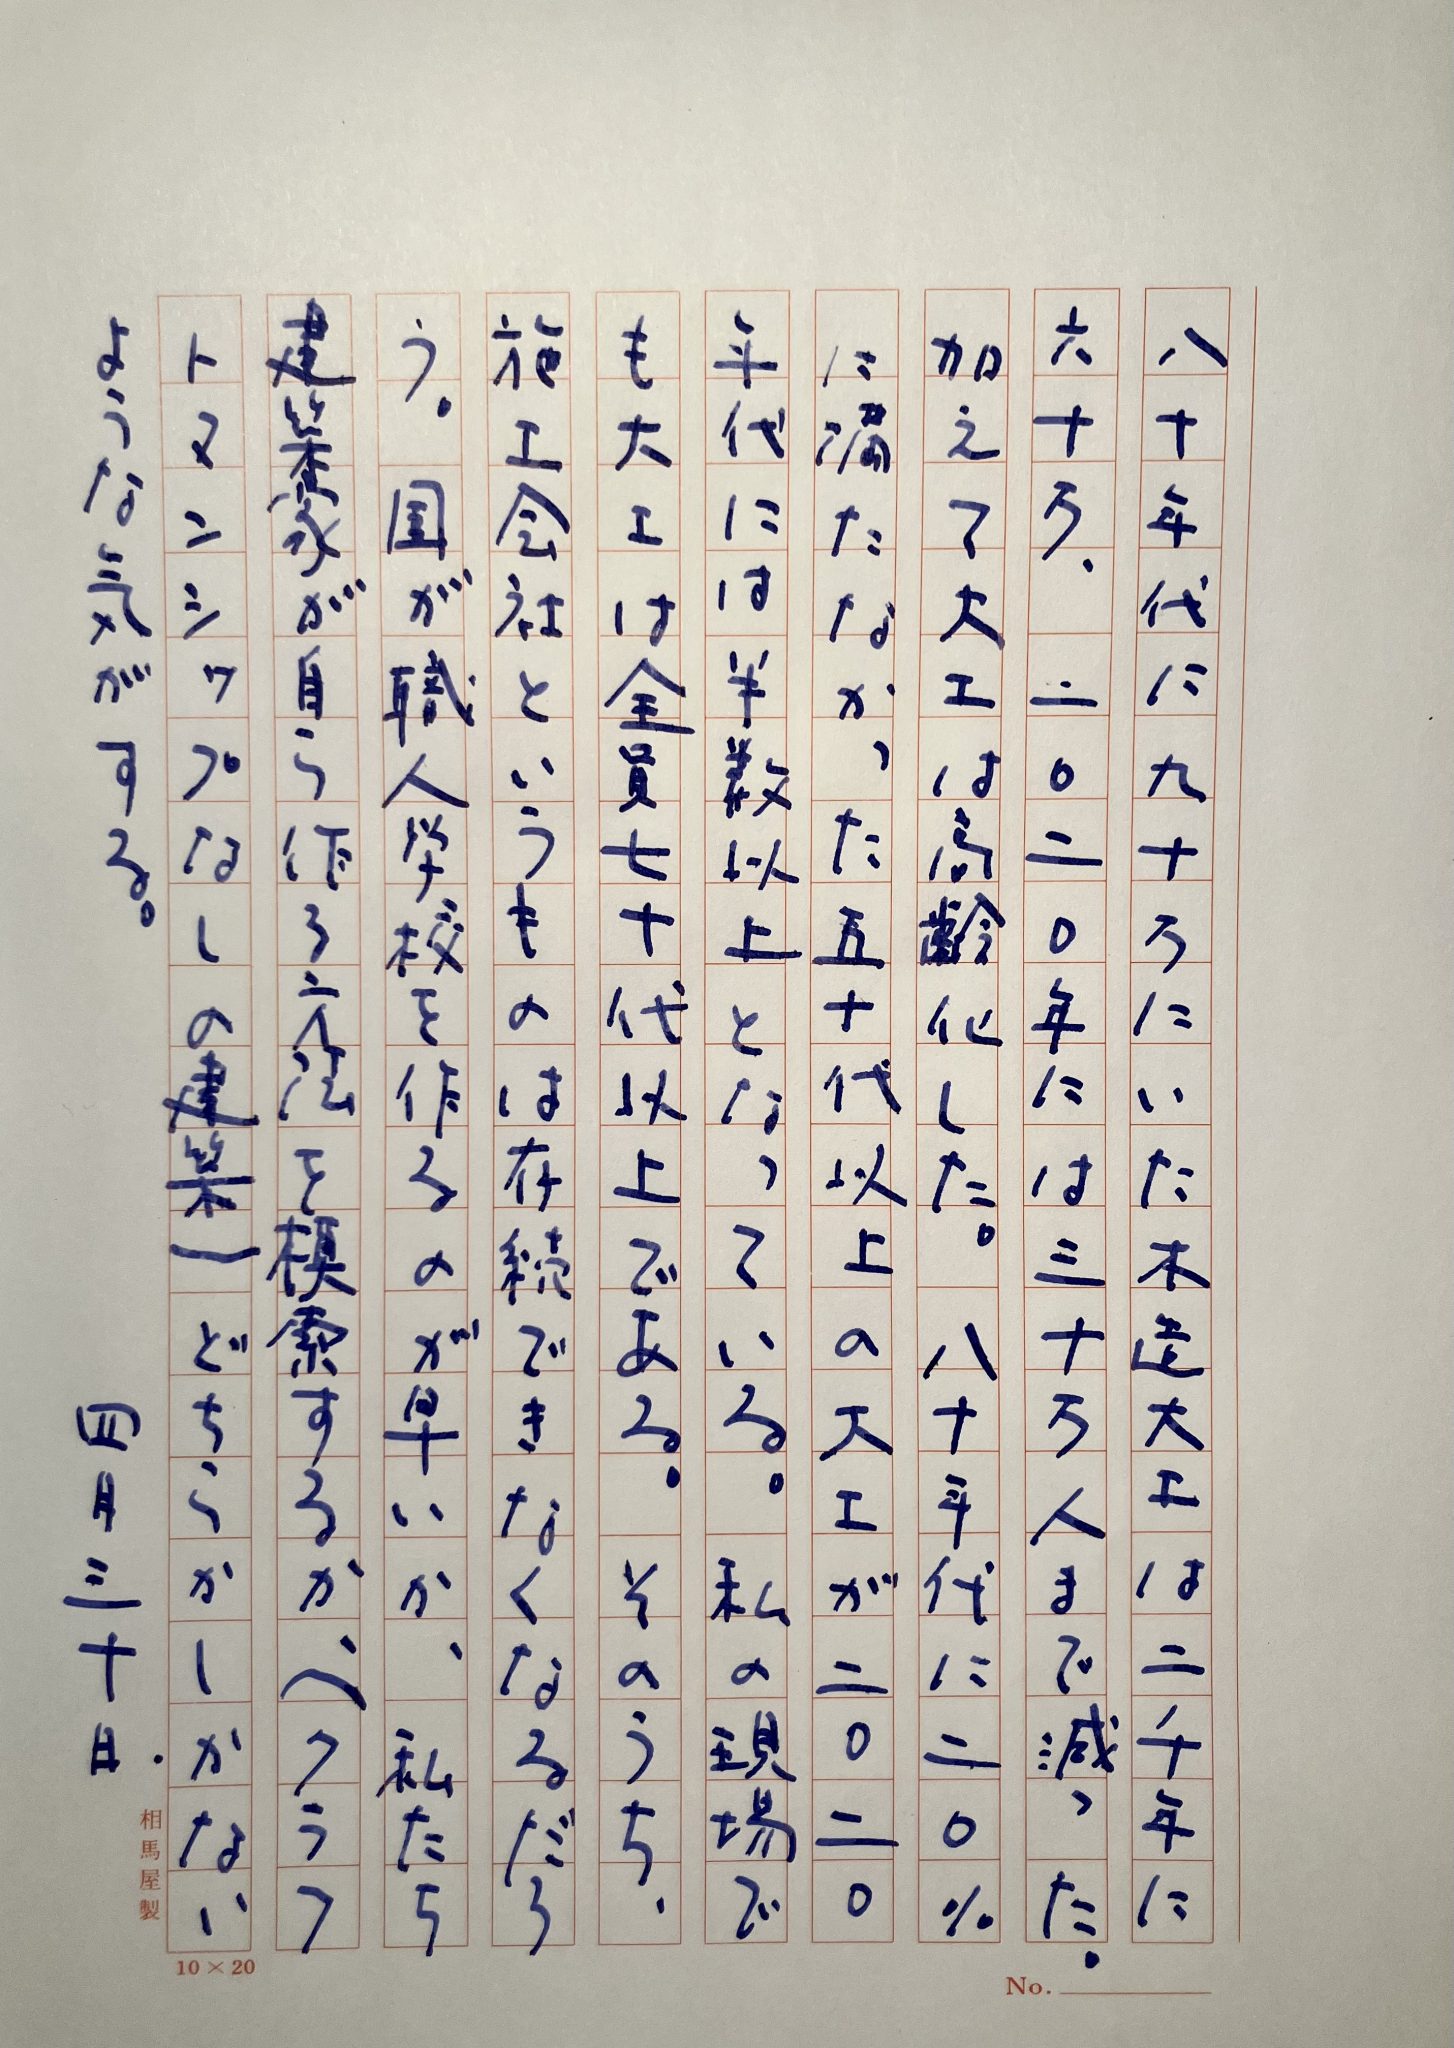 八十年代に九十万にいた木造大工は二千年に
六十万、二〇二〇年には三十万人まで減った。
加えて大工は高齢化した。八十年代に二〇%
に満たなかった五十代以上の大工が二〇二〇
年代には半数以上となっている。私の現場で
も大工は全員七十代以上である。そのうち、
施工会社というものは存続できなくなるだろ
う。国が職人学校を作るのが早いか、私たち
建築家が自ら作る方法を模索するか(クラフ
トマンシップなしの建築)どちらかしかない
ような気がする。
四月三十日.
相馬屋製
10×20
No.